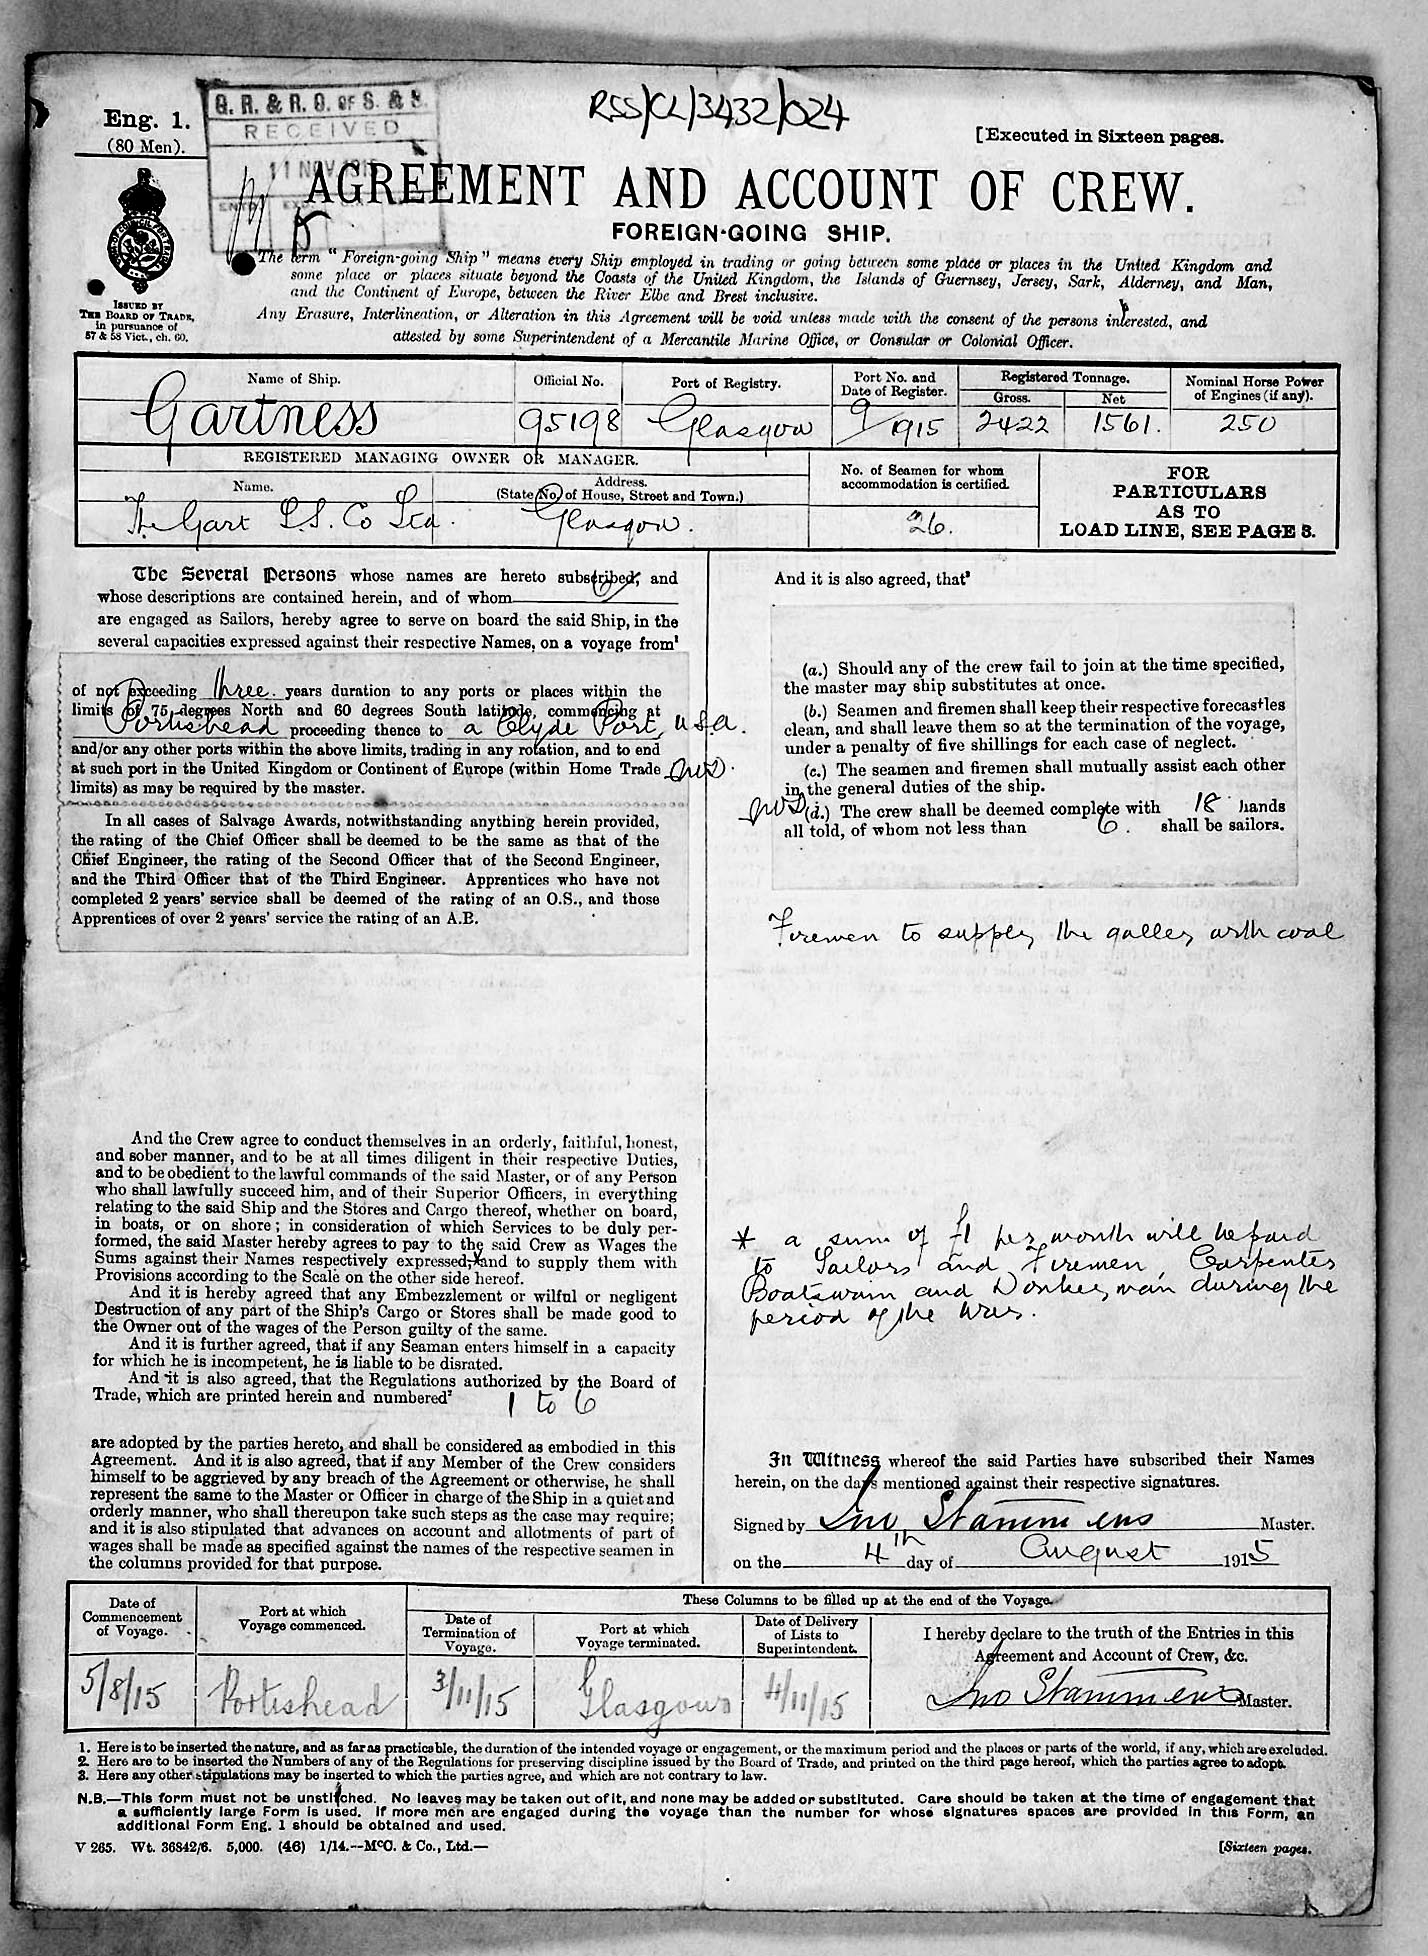 G. R. & R. O. OF S. & S.
RECEIVED
11 NOV 1915
RSS/CL/3432/024
Eng. 1.
(80 Men).
[Executed in Sixteen pages.
AGREEMENT AND ACCOUNT OF CREW.
FOREIGN-GOING SHIP.
ISSUED BY
THE BOARD OF TRADE,
in pursuance of
57 & 58 Vict., ch. 60.
The term "Foreign-going Ship" means every Ship employed in trading or going between some place or places in the United Kingdom and
some place or places situate beyond the Coasts of the United Kingdom, the Islands of Guernsey, Jersey, Sark, Alderney, and Man,
and the Continent of Europe, between the River Elbe and Brest inclusive.
Any Erasure, Interlineation, or Alteration in this Agreement will be void unless made with the consent of the persons interested, and
attested by some Superintendent of a Mercantile Marine Office, or Consular or Colonial Officer.
Name of Ship.
Gartness
Official No.
95198
Port of Registry.
Glasgow
Port No. and
Date of Register.
9/1915
Registered Tonnage.
Gross.
2422
Net
1561.
Nominal Horse Power
of Engines (if any).
250
REGISTERED MANAGING OWNER OR MANAGER.
Name.
The Gart S.S. Co Ltd.
Address.
(State No. of House, Street and Town.)
Glasgow.
No. of Seamen for whom
accommodation is certified.
26.
FOR
PARTICULARS
AS TO
LOAD LINE, SEE PAGE 3.
The Several Persons whose names are hereto subscribed, and
whose descriptions are contained herein, and of whom 6
are engaged as Sailors, hereby agree to serve on board the said Ship, in the
several capacities expressed against their respective Names, on a voyage from¹
of not exceeding three years duration to any ports or places within the
limits of 75 degrees North and 60 degrees South latitude, commencing at
Portishead proceeding thence to a Clyde Port, U.S.A.
and/or any other ports within the above limits, trading in any rotation, and to end
at such port in the United Kingdom or Continent of Europe (within Home Trade
limits) as may be required by the master.
In all cases of Salvage Awards, notwithstanding anything herein provided,
the rating of the Chief Officer shall be deemed to be the same as that of the
Chief Engineer, the rating of the Second Officer that of the Second Engineer,
and the Third Officer that of the Third Engineer. Apprentices who have not
completed 2 years' service shall be deemed of the rating of an O.S., and those
Apprentices of over 2 years' service the rating of an A.B.
And the Crew agree to conduct themselves in an orderly, faithful, honest,
and sober manner, and to be at all times diligent in their respective Duties,
and to be obedient to the lawful commands of the said Master, or of any Person
who shall lawfully succeed him, and of their Superior Officers, in everything
relating to the said Ship and the Stores and Cargo thereof, whether on board,
in boats, or on shore; in consideration of which Services to be duly per-
formed, the said Master hereby agrees to pay to the said Crew as Wages the
Sums against their Names respectively expressed, and to supply them with
Provisions according to the Scale on the other side hereof.
And it is hereby agreed that any Embezzlement or wilful or negligent
Destruction of any part of the Ship's Cargo or Stores shall be made good to
the Owner out of the wages of the Person guilty of the same.
And it is further agreed, that if any Seaman enters himself in a capacity
for which he is incompetent, he is liable to be disrated.
And it is also agreed, that the Regulations authorized by the Board of
Trade, which are printed herein and numbered² 1 to 6
are adopted by the parties hereto, and shall be considered as embodied in this
Agreement. And it is also agreed, that if any Member of the Crew considers
himself to be aggrieved by any breach of the Agreement or otherwise, he shall
represent the same to the Master or Officer in charge of the Ship in a quiet and
orderly manner, who shall thereupon take such steps as the case may require;
and it is also stipulated that advances on account and allotments of part of
wages shall be made as specified against the names of the respective seamen in
the columns provided for that purpose.
And it is also agreed, that³
(a.) Should any of the crew fail to join at the time specified,
the master may ship substitutes at once.
(b.) Seamen and firemen shall keep their respective forecastles
clean, and shall leave them so at the termination of the voyage,
under a penalty of five shillings for each case of neglect.
(c.) The seamen and firemen shall mutually assist each other
in the general duties of the ship.
(d.) The crew shall be deemed complete with 18 hands
all told, of whom not less than 6. shall be sailors.
Firemen to supply the galley with coal
* a sum of £1 per month will be paid
to Sailors and Firemen, Carpenter
Boatswain and Donkeyman during the
period of the War.
In Witness whereof the said Parties have subscribed their Names
herein, on the days mentioned against their respective signatures.
Signed by Jno Stammers Master.
on the 4th day of August 1915
Date of
Commencement
of Voyage.
5/8/15
Port at which
Voyage commenced.
Portishead
These Columns to be filled up at the end of the Voyage.
Date of
Termination of
Voyage.
3/11/15
Port at which
Voyage terminated.
Glasgow
Date of Delivery
of Lists to
Superintendent.
4/11/15
I hereby declare to the truth of the Entries in this
Agreement and Account of Crew, &c.
Jno Stammers Master.
1. Here is to be inserted the nature, and as far as practicable, the duration of the intended voyage or engagement, or the maximum period and the places or parts of the world, if any, which are excluded.
2. Here are to be inserted the Numbers of any of the Regulations for preserving discipline issued by the Board of Trade, and printed on the third page hereof, which the parties agree to adopt.
3. Here any other stipulations may be inserted to which the parties agree, and which are not contrary to law.
N.B.—This form must not be unstitched. No leaves may be taken out of it, and none may be added or substituted. Care should be taken at the time of engagement that
a sufficiently large Form is used. If more men are engaged during the voyage than the number for whose signatures spaces are provided in this Form, an
additional Form Eng. 1 should be obtained and used.
V 265. Wt. 36842/6. 5,000. (46) 1/14.--McC. & Co., Ltd.—
[Sixteen pages.